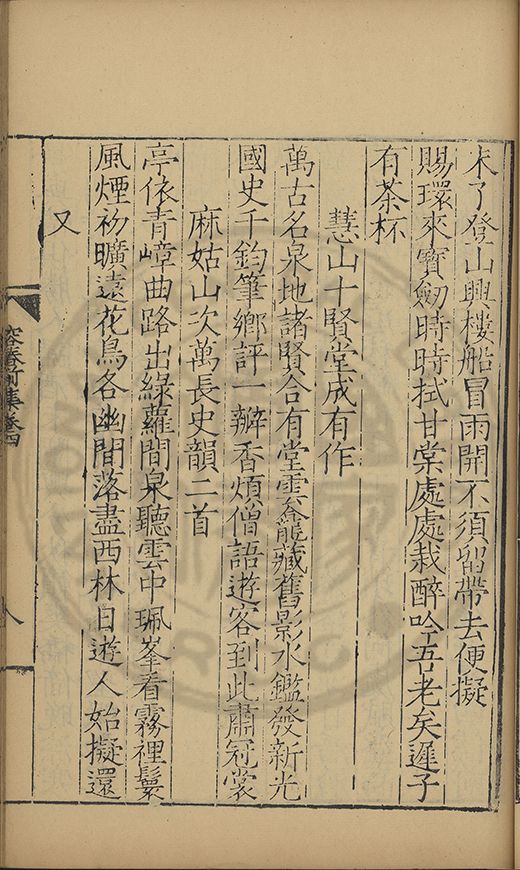 未了登山興樓船冒雨開不須留帶去便擬
賜環來寳劒時時拭甘棠處處栽醉吟吾老矣遲子
有茶杯
慧山十賢堂成有作
萬古名泉地諸賢合有堂雲龕藏舊影水鑑發新光
國史千鈞筆鄉評一瓣香煩僧語遊客到此肅冠裳
麻姑山次萬長史韻二首
亭依青嶂曲路出綠蘿間泉聽雲中珮峯看霧裡鬟
風煙初曠遠花鳥各幽閒落盡西林日遊人始擬還
又
容春前集卷四
八